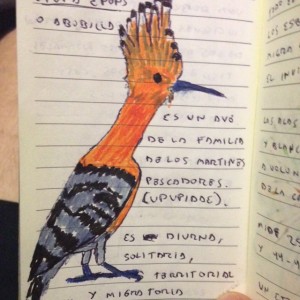 EPOPS
O ABUBILLA
ES UN AVE
DE LA FAMILIA
DE LOS MARTINES
PESCADORES.
(UPUPIDAE).
ES DIURNO,
SOLITARIO,
TERRITORIAL
Y MIGRATORIO
LOS ES
MIGRA
EL INVI
LAS ALAS
Y BLANC
DE LA C
MIDE 2
Y 44-4
UN CO